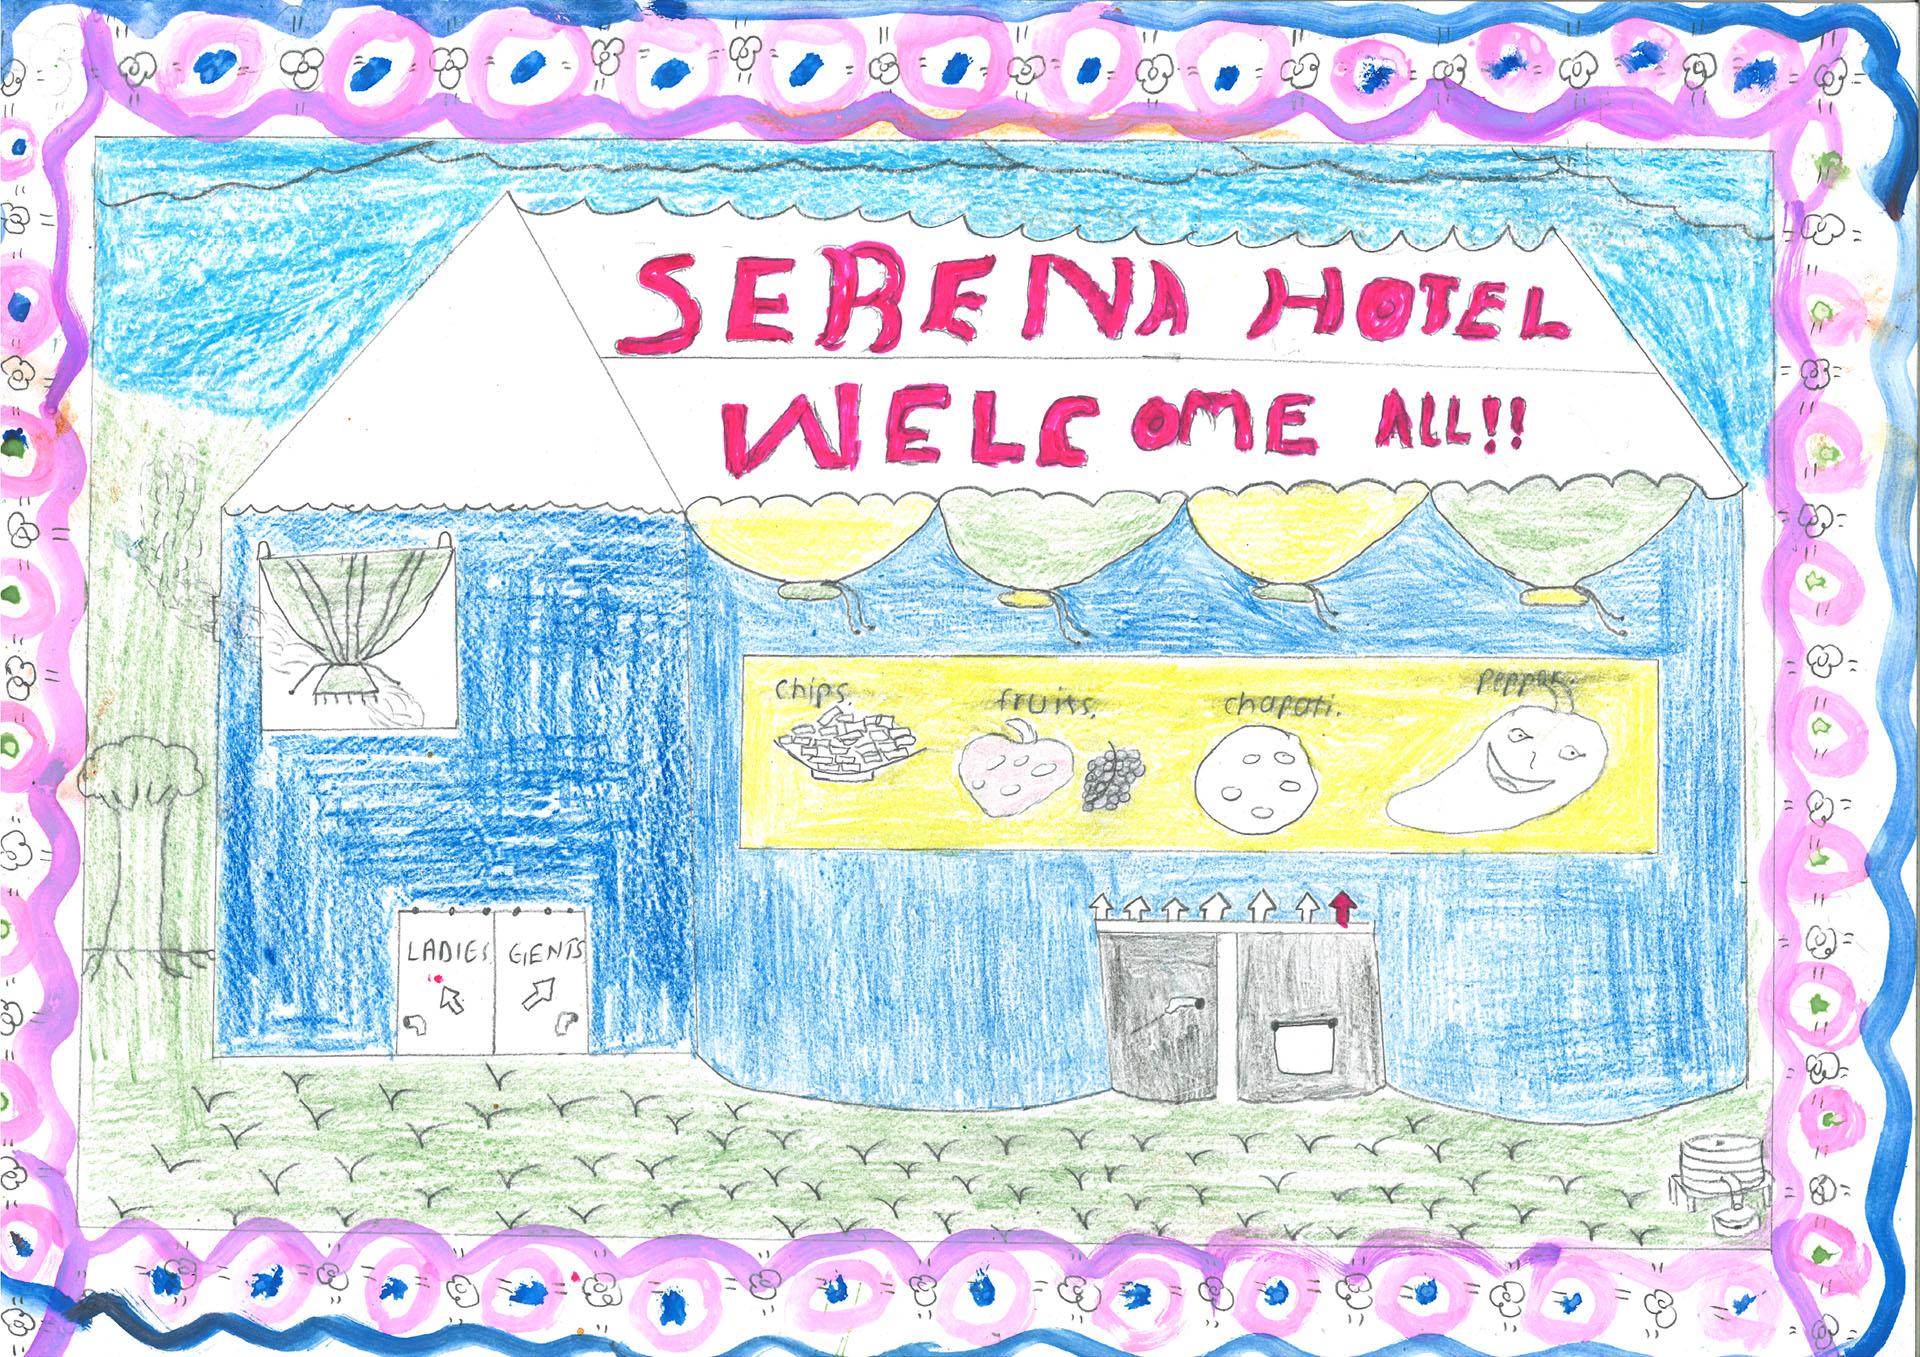 SERENA HOTEL
WELCOME ALL!!
chips.
fruits.
chapati.
pepper.
LADIES
GENTS